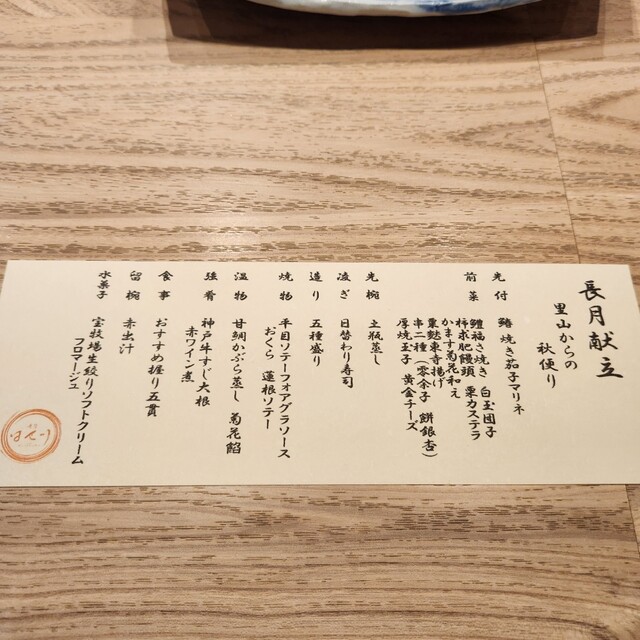 長月献立
里山からの
秋便り
先付 鰆 焼き茄子マリネ
前菜 鱧福さ焼き 白玉団子
柿求肥饅頭 栗カステラ
かます菊花和え
粟麩東寺揚げ
串二種(零余子 餅銀杏)
厚焼玉子 黄金チーズ
先椀 土瓶蒸し
凌ぎ 日替わり寿司
造り 五種盛り
焼物 平目ソテーフォアグラソース
おくら 蓮根ソテー
温物 甘鯛かぶら蒸し 菊花餡
強肴 神戸牛すじ大根
赤ワイン煮
食事 おすすめ握り五貫
留椀 赤出汁
水菓子 宝牧場生絞りソフトクリーム
フロマージュ